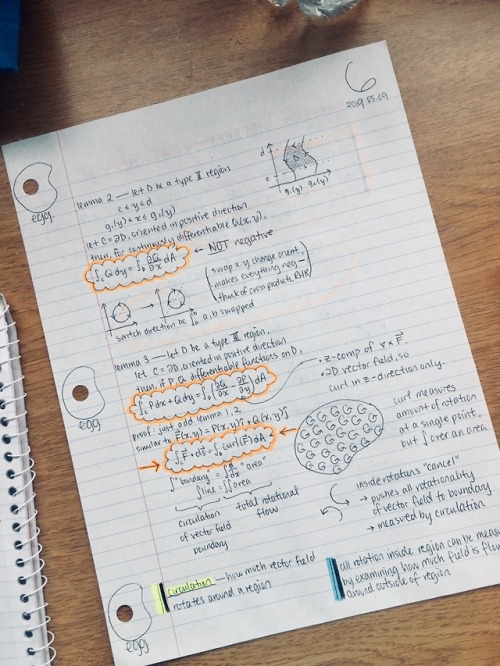 6
2019.05.09
egg
lemma 2 — let D be a type II region
c ≤ y ≤ d
g₁(y) ≤ x ≤ g₂(y)
let C = ∂D, oriented in positive direction
then, for continously differentiable Q(x,y),
∫c Q dy = ∫D ∂Q/∂x dA ← NOT negative
d
c
D
g₁(y) g₂(y)
(swap x y change orient,
makes everything neg —
think of cross products, RHR)
switch direction bc ∫ a, b swapped
lemma 3 — let D be a type III region,
let C = ∂D, oriented in positive direction
then, if P, Q differentiable functions on D,
∫c Pdx + Qdy = ∫D (∂Q/∂x - ∂P/∂y) dA
• z-comp of ∇ × F.
• 2D vector field, so
curl in z-direction only.
egg
proof: just add lemma 1, 2
similar to F(x,y) = P(x,y)i + Q(x,y)j
→ ∫c F · ds = ∫D curl(F) dA ←
curl measures
amount of rotation
at a single point,
but ∫ over an area
∫ "boundary" = "area"
∫ line = ∫∫ area
circulation
of vector field
boundary
total rotational
flow
inside rotations "cancel"
→ pushes all rotationality
of vector field to boundary
→ measured by circulation
circulation — how much vector field
rotates around a region
all rotation inside region can be measu
by examining how much field is flow
around outside of region
egg